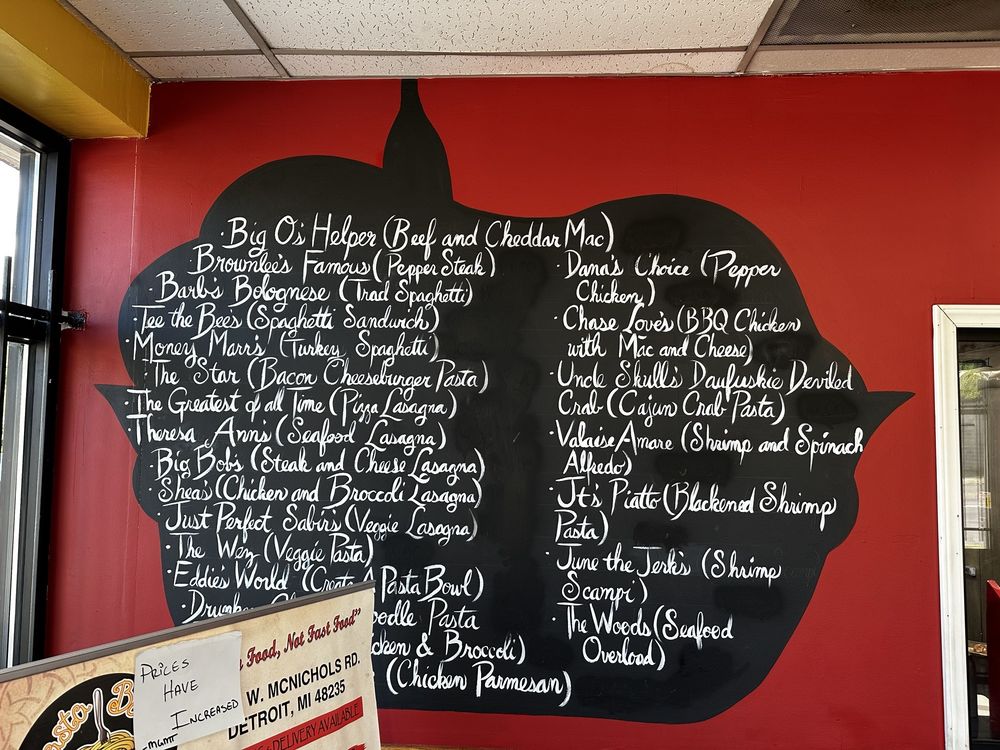 · Big O's Helper (Beef and Cheddar Mac)
· Brownlee's Famous (Pepper Steak)
· Barb's Bolognese (Trad Spaghetti)
· Tee the Bee's (Spaghetti Sandwich)
· Money Marr's (Turkey Spaghetti)
· The Star (Bacon Cheeseburger Pasta)
· The Greatest of all Time (Pizza Lasagna)
· Theresa Ann's (Seafood Lasagna)
· Big Bob's (Steak and Cheese Lasagna)
· Shea's (Chicken and Broccoli Lasagna)
· Just Perfect Sabir's (Veggie Lasagna)
· The Wez (Veggie Pasta)
· Eddie's World (Create Pasta Bowl)
· Drunken
oodle Pasta
cken & Broccoli)
(Chicken Parmesan)
· Dana's Choice (Pepper
Chicken)
· Chase Love's (BBQ Chicken
with Mac and Cheese)
· Uncle Skull's Daufuskie Deviled
Crab (Cajun Crab Pasta)
· Valaise Amare (Shrimp and Spinach
Alfredo)
· Jt's Piatto (Blackened Shrimp
Pasta)
· June the Jerk's (Shrimp
Scampi)
· The Woods (Seafood
Overload)
Food, Not Fast Food"
W. MCNICHOLS RD.
DETROIT, MI 48235
& DELIVERY AVAILABLE
PRICES
HAVE
INCREASED
-MGMT